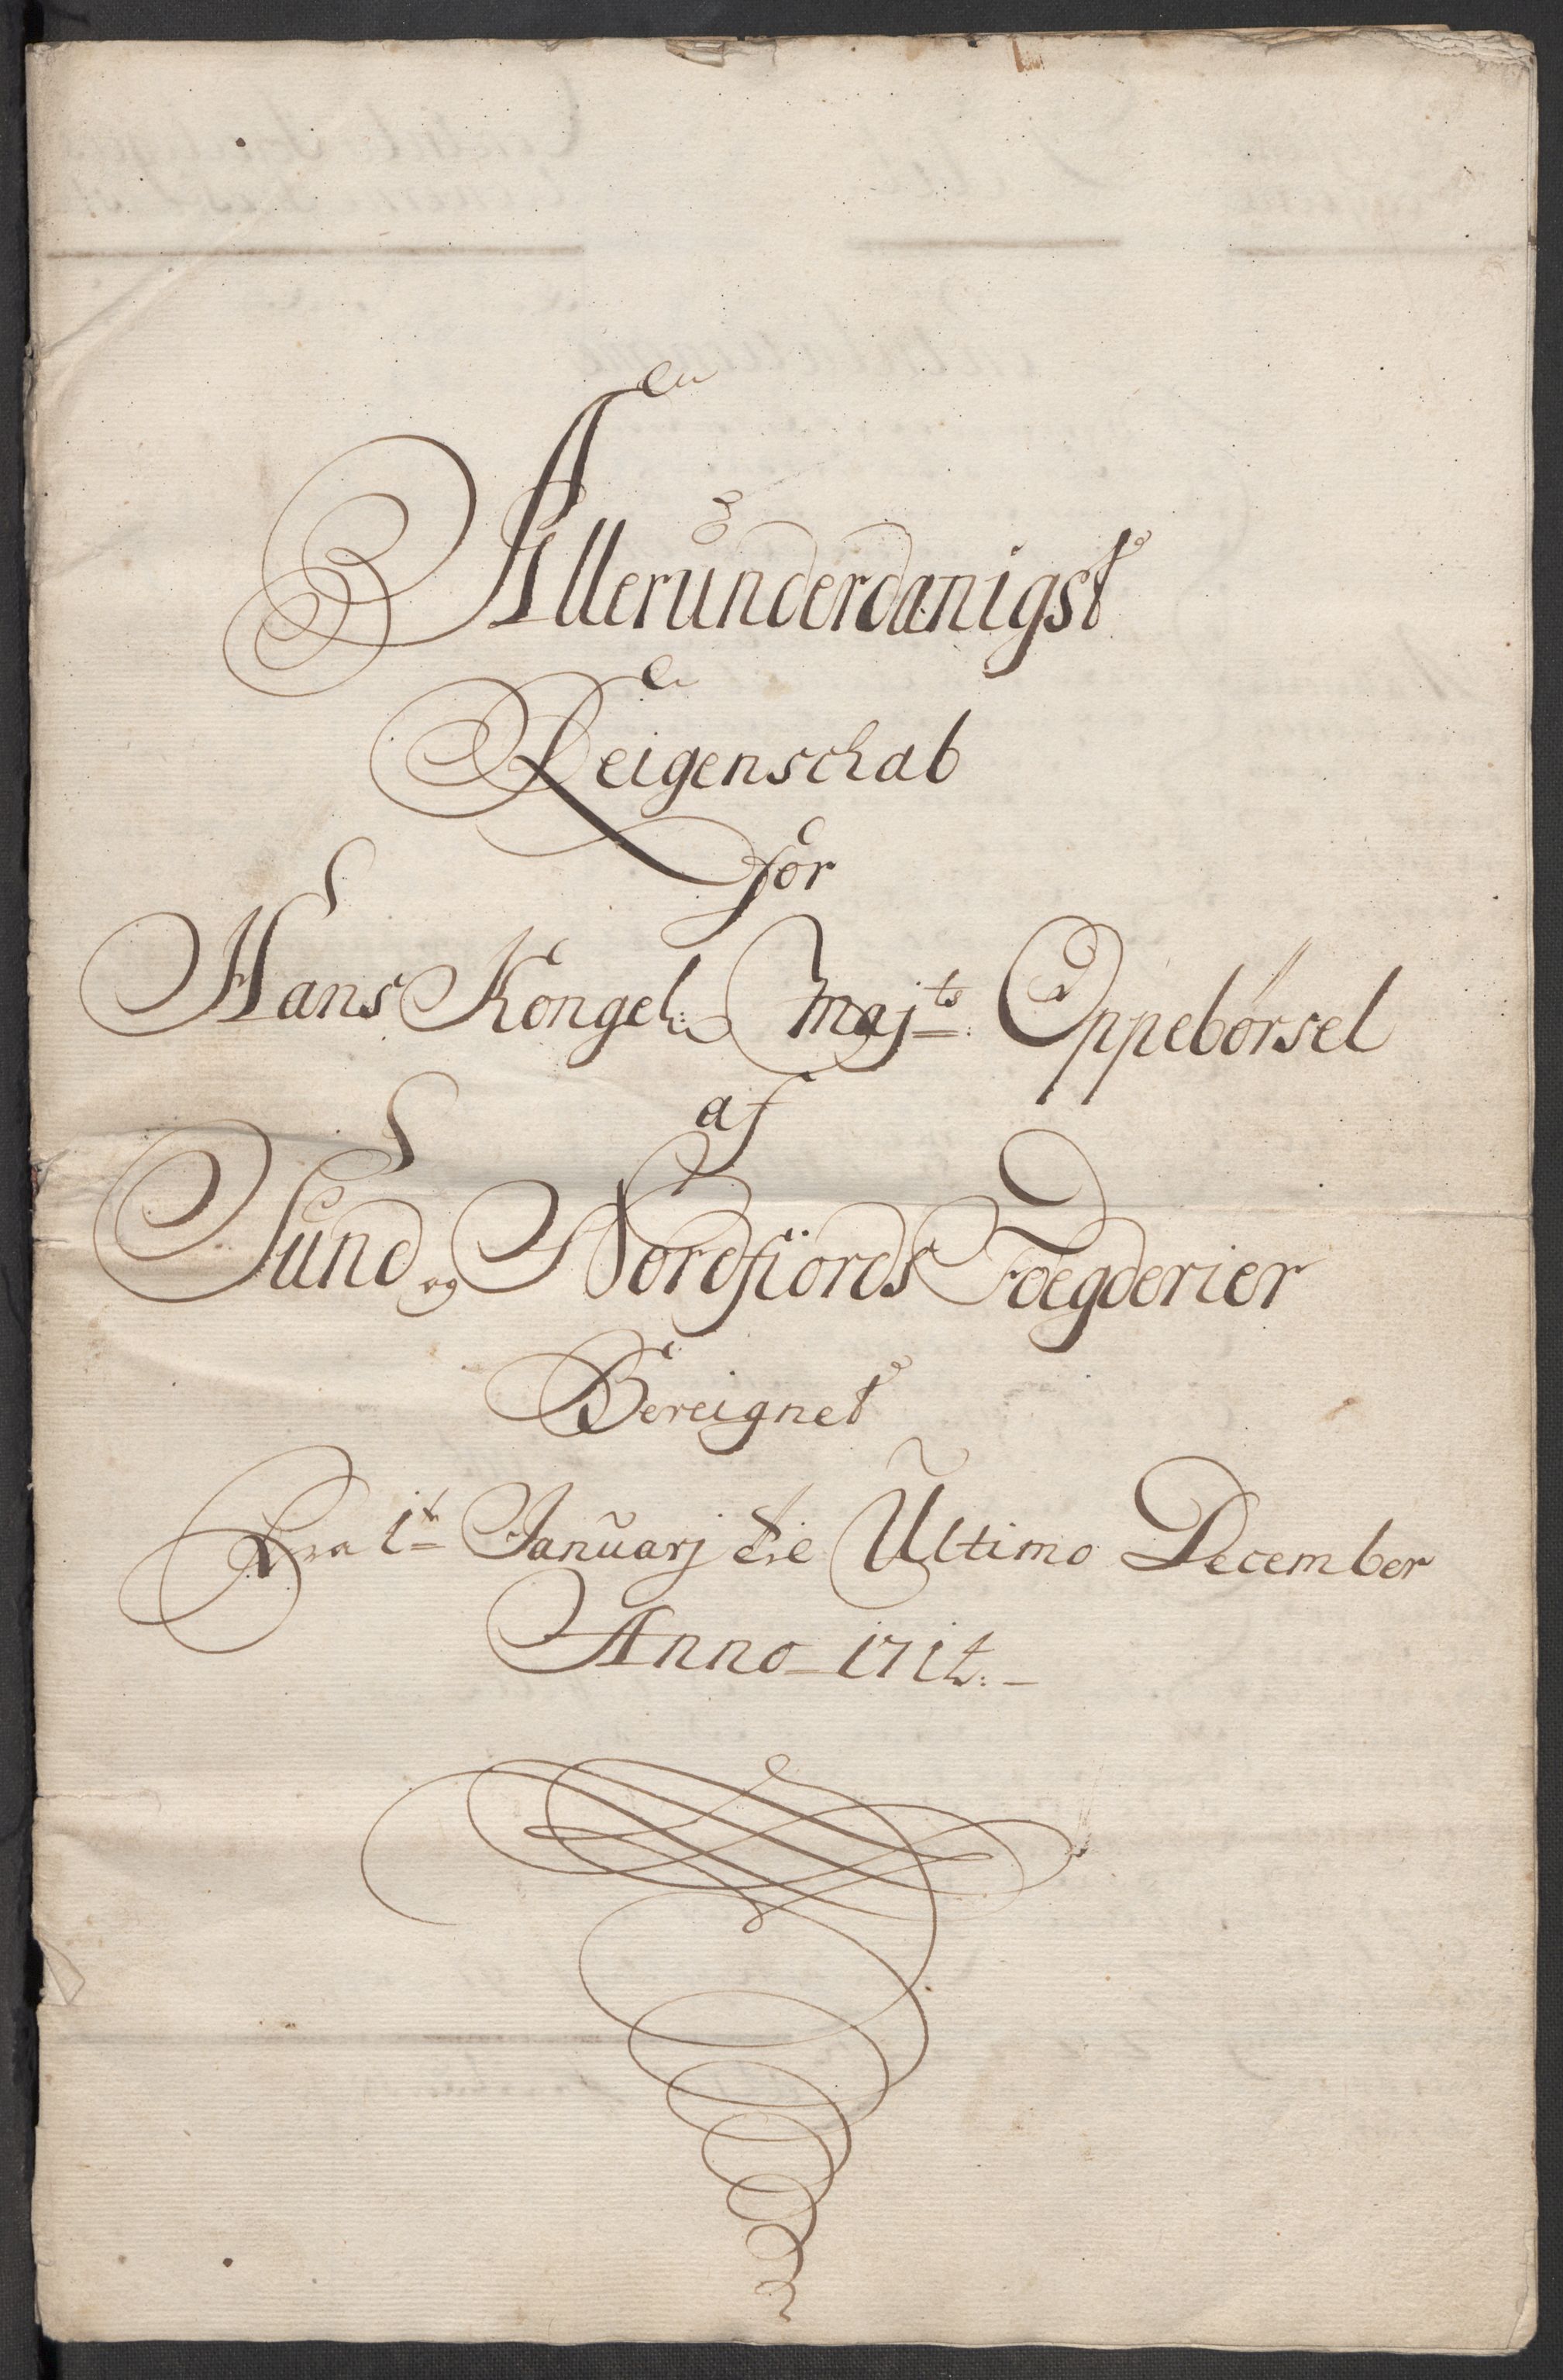 Allerunderdanigst
Reigenschab
for
Hans Kongel: Maj:ts Oppebørsel
af
Sund og Nordfiords Foegderier
Bereignet
Fra 1t Januarj til Ultimo December
Anno 1714.